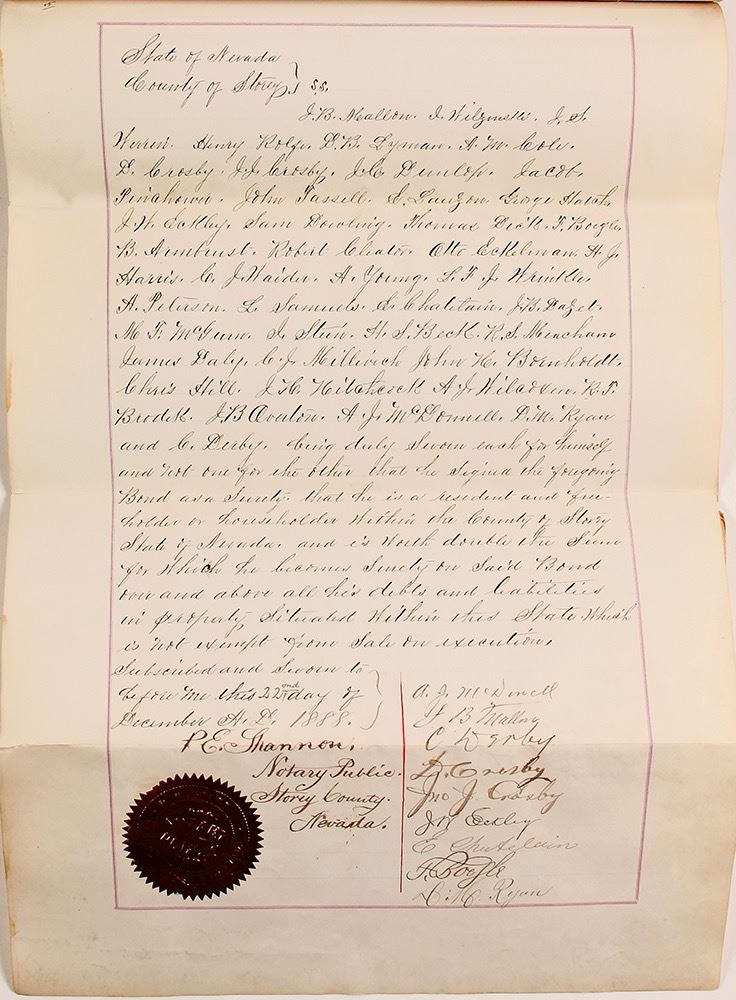 State of Nevada
County of Storey } S.S.
J. B. Mallon. I. Wilzinski. J. S.
Henry Rolfe. D. B. Lyman. A. M. Cole.
D. Crosby. J. J. Crosby. J. C. Dunlop. Jacob
John Tassell. George Hatch
J. W. Eckley. Sam Dowling. Thomas Dick. F. Boegle
B. Armbrust. Robert Cleator. Otto Eckelman. H. J.
Harris. C. J. Waider. A. Young. L. F. J. Wrinkle.
A. Peterson. L. Samuels. E. Chatelain. J. B. Dazet.
M. F. McGurn. I. Stein. H. S. Beck. R. S. Meacham
James Daly. C. J. Millivich John H. Bornholdt.
Chris Hill. J. H. Hitchcock A. J. Wilcoxen. R. F.
J. B Overton. A. J. McDonnell. D. M. Ryan
and C. Derby. being duly Sworn each for himself
and not one for the other that he Signed the foregoing
Bond as a Surety. that he is a resident and free-
holder or householder Within the County of Storey
State of Nevada. and is Worth double the Sum
for Which he becomes Surety on Said Bond
over and above all his debts and liabilities
in property Situated Within this State Which
is not exempt from Sale on execution.
Subscribed and Sworn to
before me this 22nd day of
December A. D. 1888.
P. E. Shannon.
Notary Public.
Storey County.
Nevada.
A. J. McDonell
J B Mallon
C Derby
D. Crosby
Jno J. Crosby
J W Eckley
E Chatelain
F. Boegle
D. M. Ryan